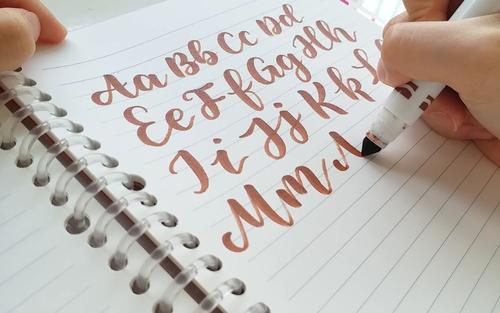 Aa Bb Cc Dd
Ee Ff Gg Hh
Ii Jj Kk
Mm